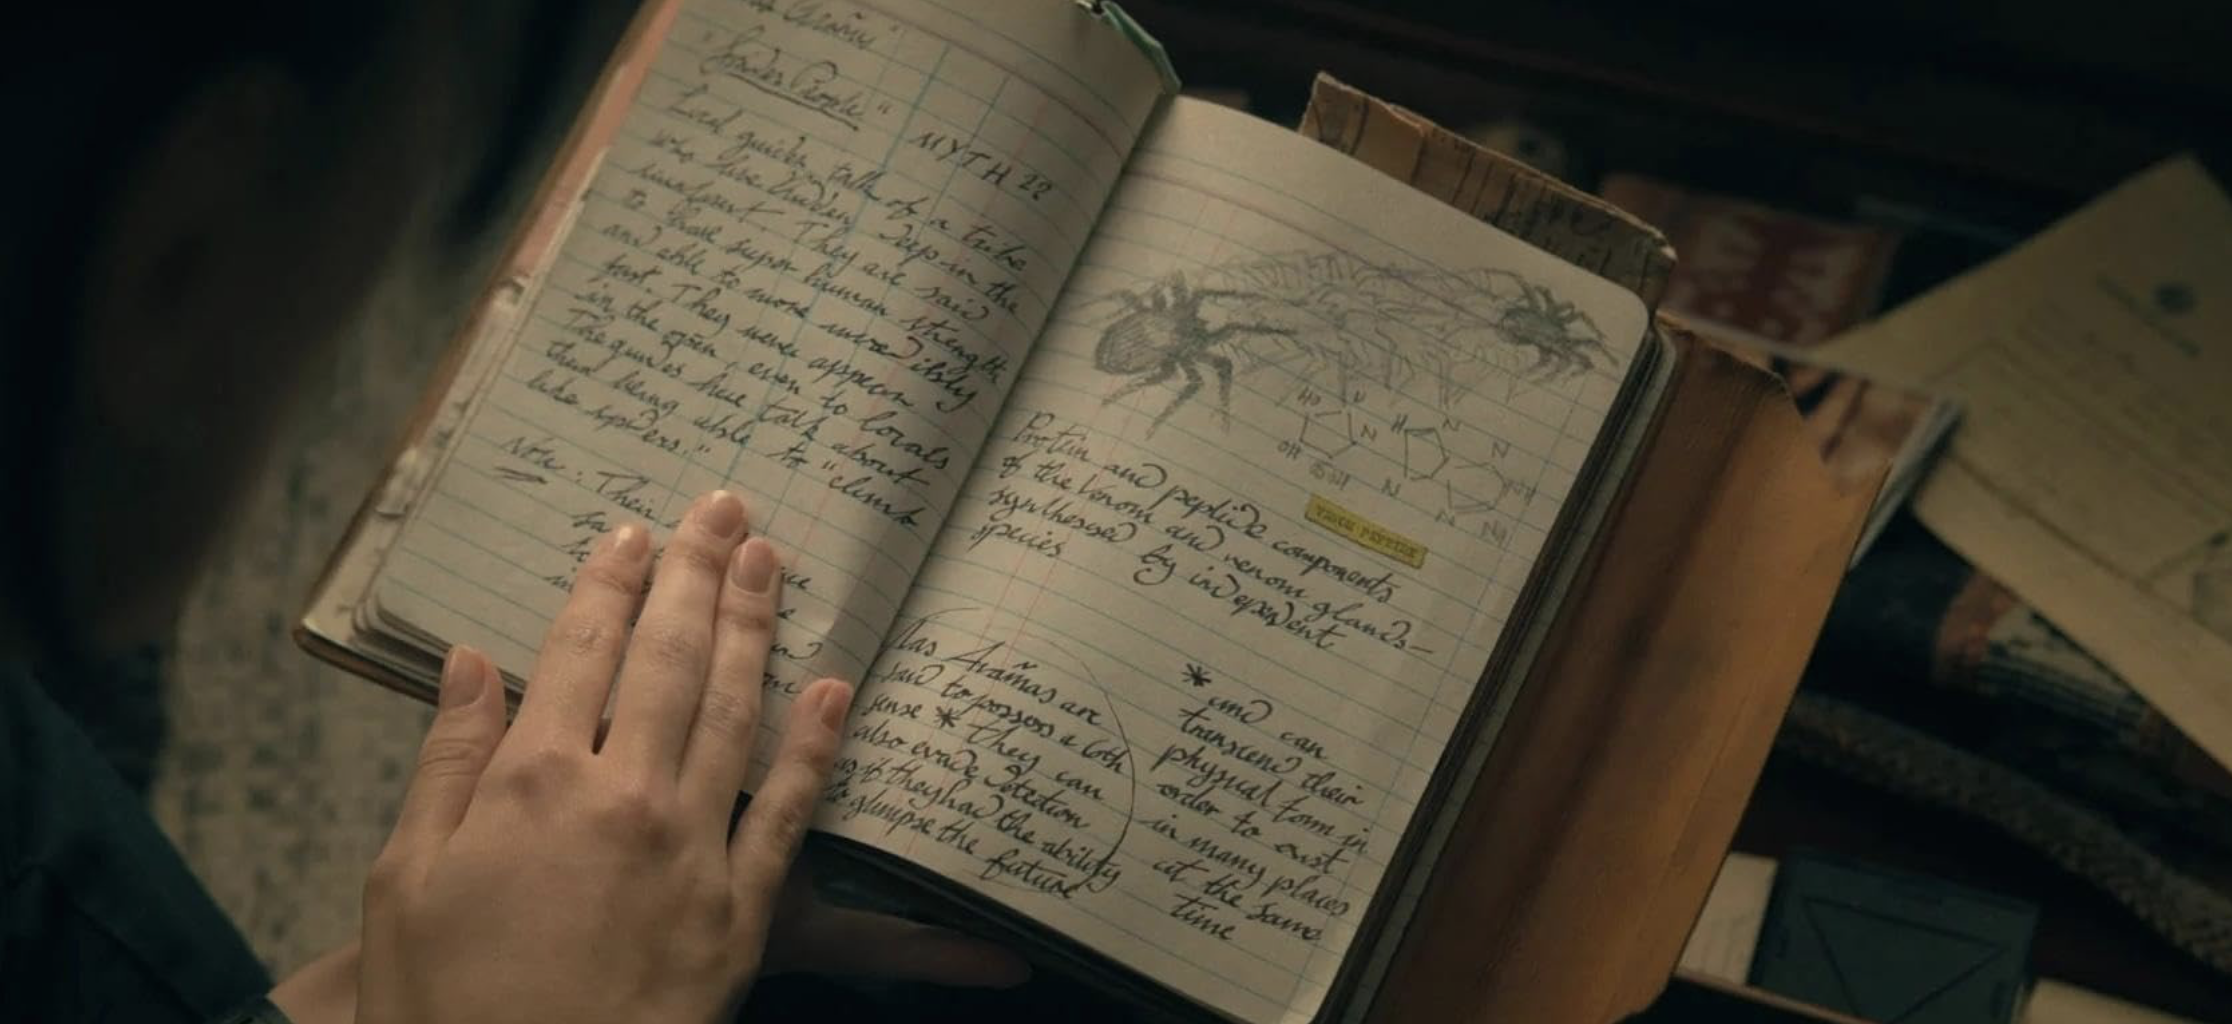 Spider People"
MYTH 22
Local guides talk of a tribe
who live hidden deep in the
rainforest. They are said
to have super human strength
and able to move incredibly
fast. They never appear
in the open, even to locals
The guides have talk about
them being able to "climb
like spiders."
Note: Their
Protein and peptide components
of the venom and venom glands-
synthesised by independent
species
HO
N
H
N
N
OH
OH
N
N
NH
Las Arañas are
said to possess a 6th
sense * they can
also evade detection
as if they had the ability
to glimpse the
future
* and can
transcend their
physical form in
order to exist
in many places
at the same
time